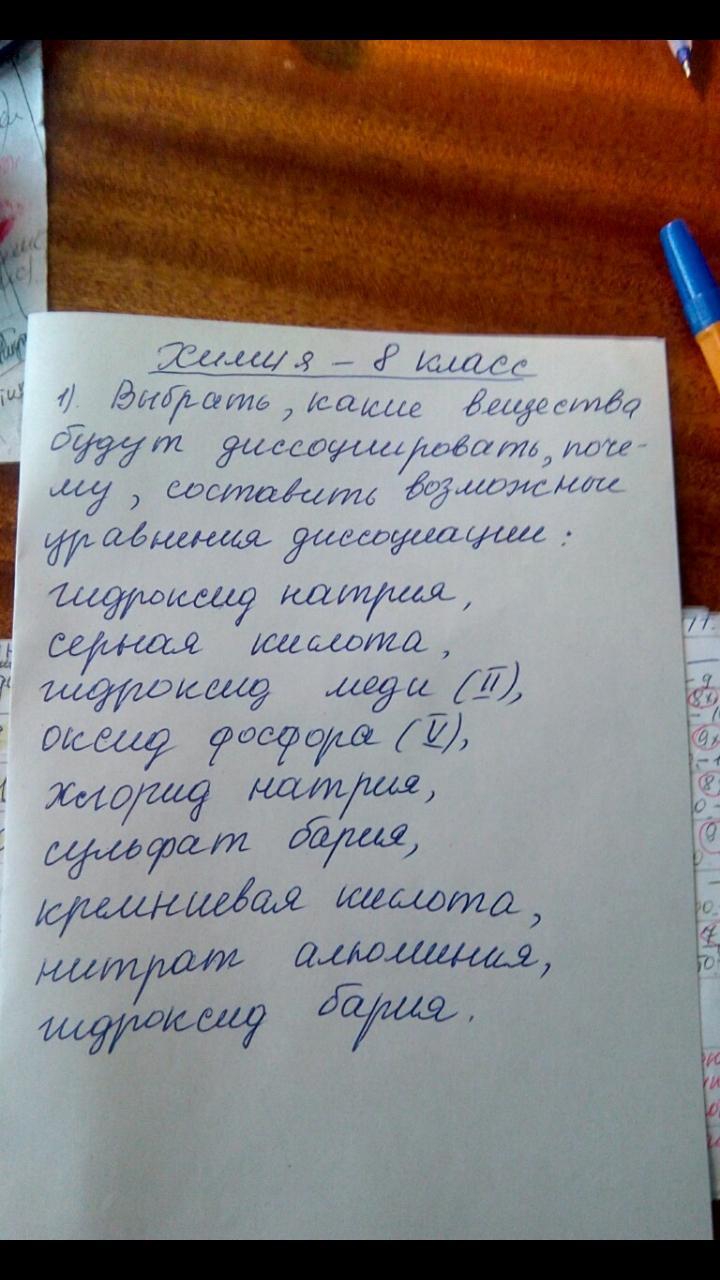 Химия - 8 класс
1). Выбрать, какие вещества
будут диссоциировать, поче-
му, составить возможные
уравнения диссоциации:
гидроксид натрия,
серная кислота,
гидроксид меди (II),
оксид фосфора (V),
хлорид натрия,
сульфат бария,
кремниевая кислота,
нитрат алюминия,
гидроксид бария.